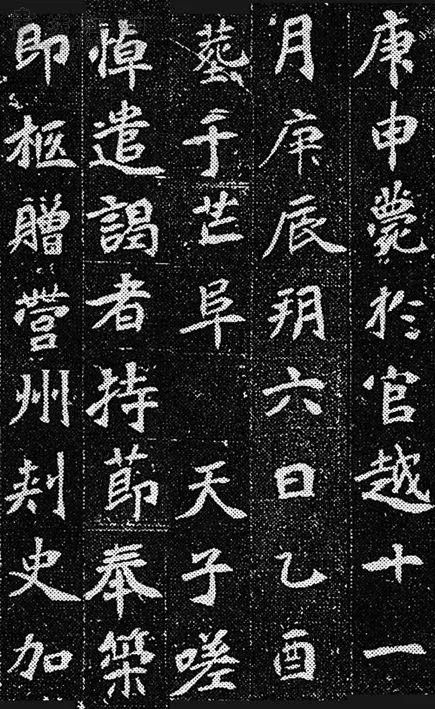 庚申薨於官越十一
月庚辰朔六日乙酉
葬于芒阜天子嗟
悼遣謁者持節奉策
即柩贈營州刺史加